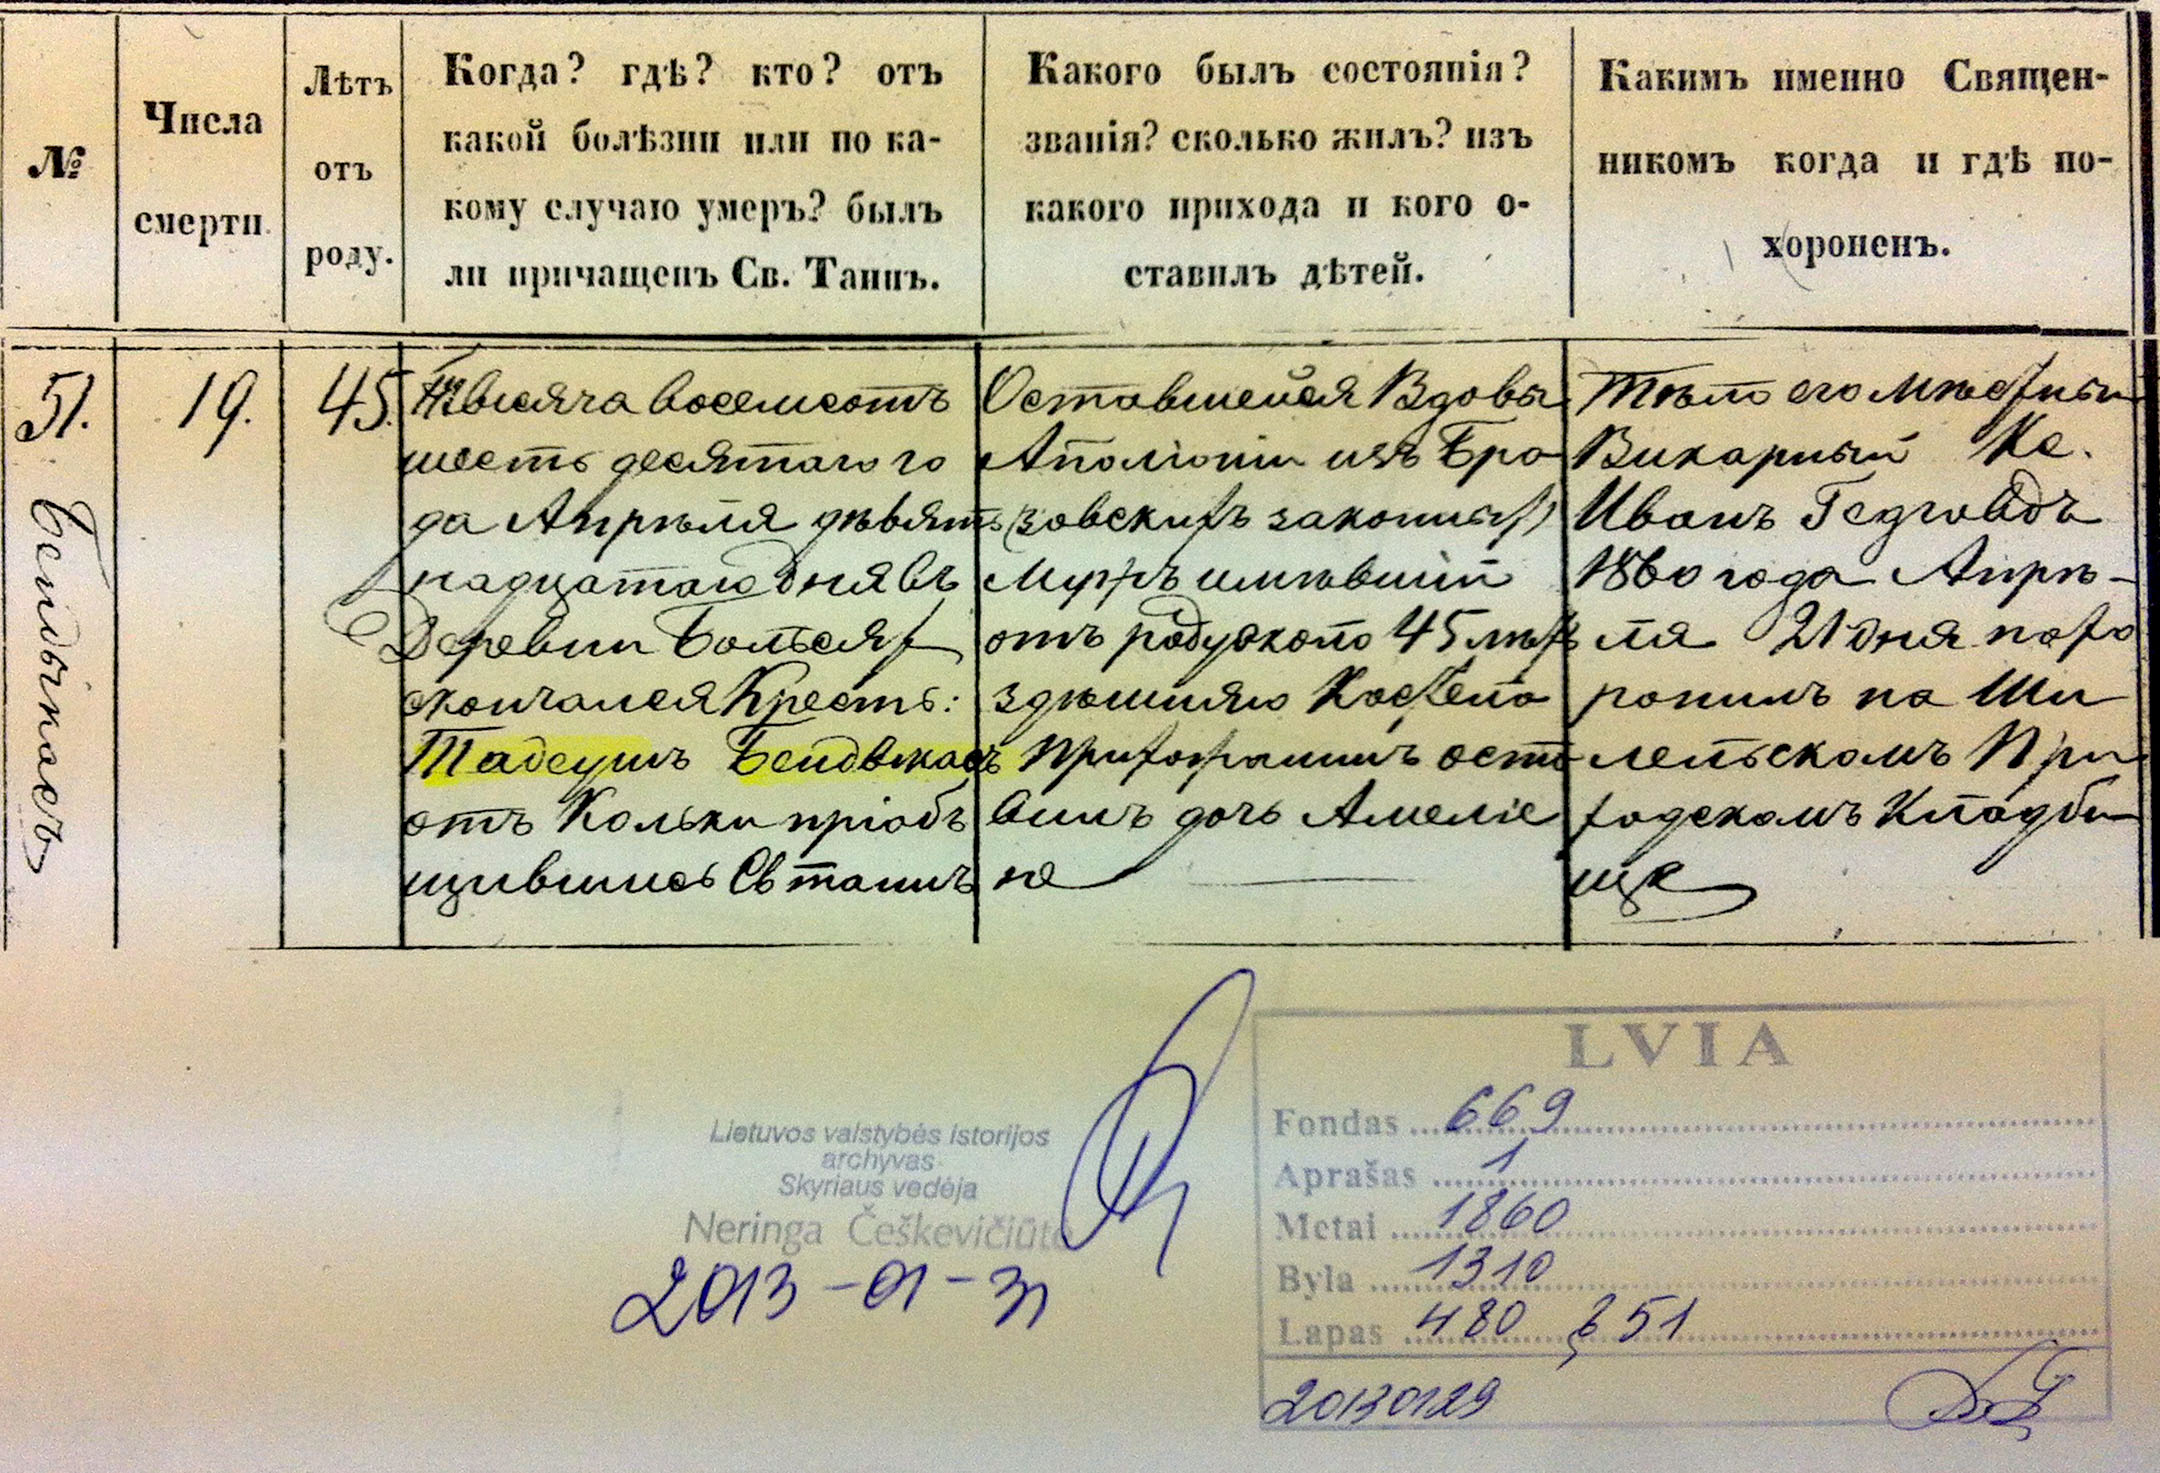 №
Числа
смерти.
Лѣтъ
отъ
роду.
Когда? гдѣ? кто? отъ
какой болѣзни или по ка-
кому случаю умеръ? былъ
ли причащенъ Св. Таинъ.
Какого былъ состоянія?
званія? сколько жилъ? изъ
какого прихода и кого о-
ставилъ дѣтей.
Какимъ именно Священ-
никомъ когда и гдѣ по-
хороненъ.
51.
Бендыкасъ
19.
45.
Тысяча восемсотъ
шесть десятаго го
да Апрѣля дѣвят
надцатаго дня въ
Деревни
скончался Кресть:
Тадеушъ Бендвкасъ
отъ Кольки пріобъ
щившись Св таинъ
Оставшейся Вдовы
Аполіоніи изъ Бро
зовскихъ законный
Мужъ имѣвшій
отъ роду около 45 лѣтъ
здѣшняго Костела
Прихожанинъ оста
вилъ дочь Амеліе
не
Тѣло его мѣстный
Викарный Кс.
Иванъ Гедговдъ
1860 года Апрѣ-
ля 21 дня похо
ронилъ на Ши
лельскомъ При
ходскомъ Кладби
ще
Lietuvos valstybės istorijos
archyvas
Skyriaus vedėja
Neringa Češkevičiūtė
2013-01-31
LVIA
Fondas 669
Aprašas 1
Metai 1860
Byla 1310
Lapas 480 51
20130129